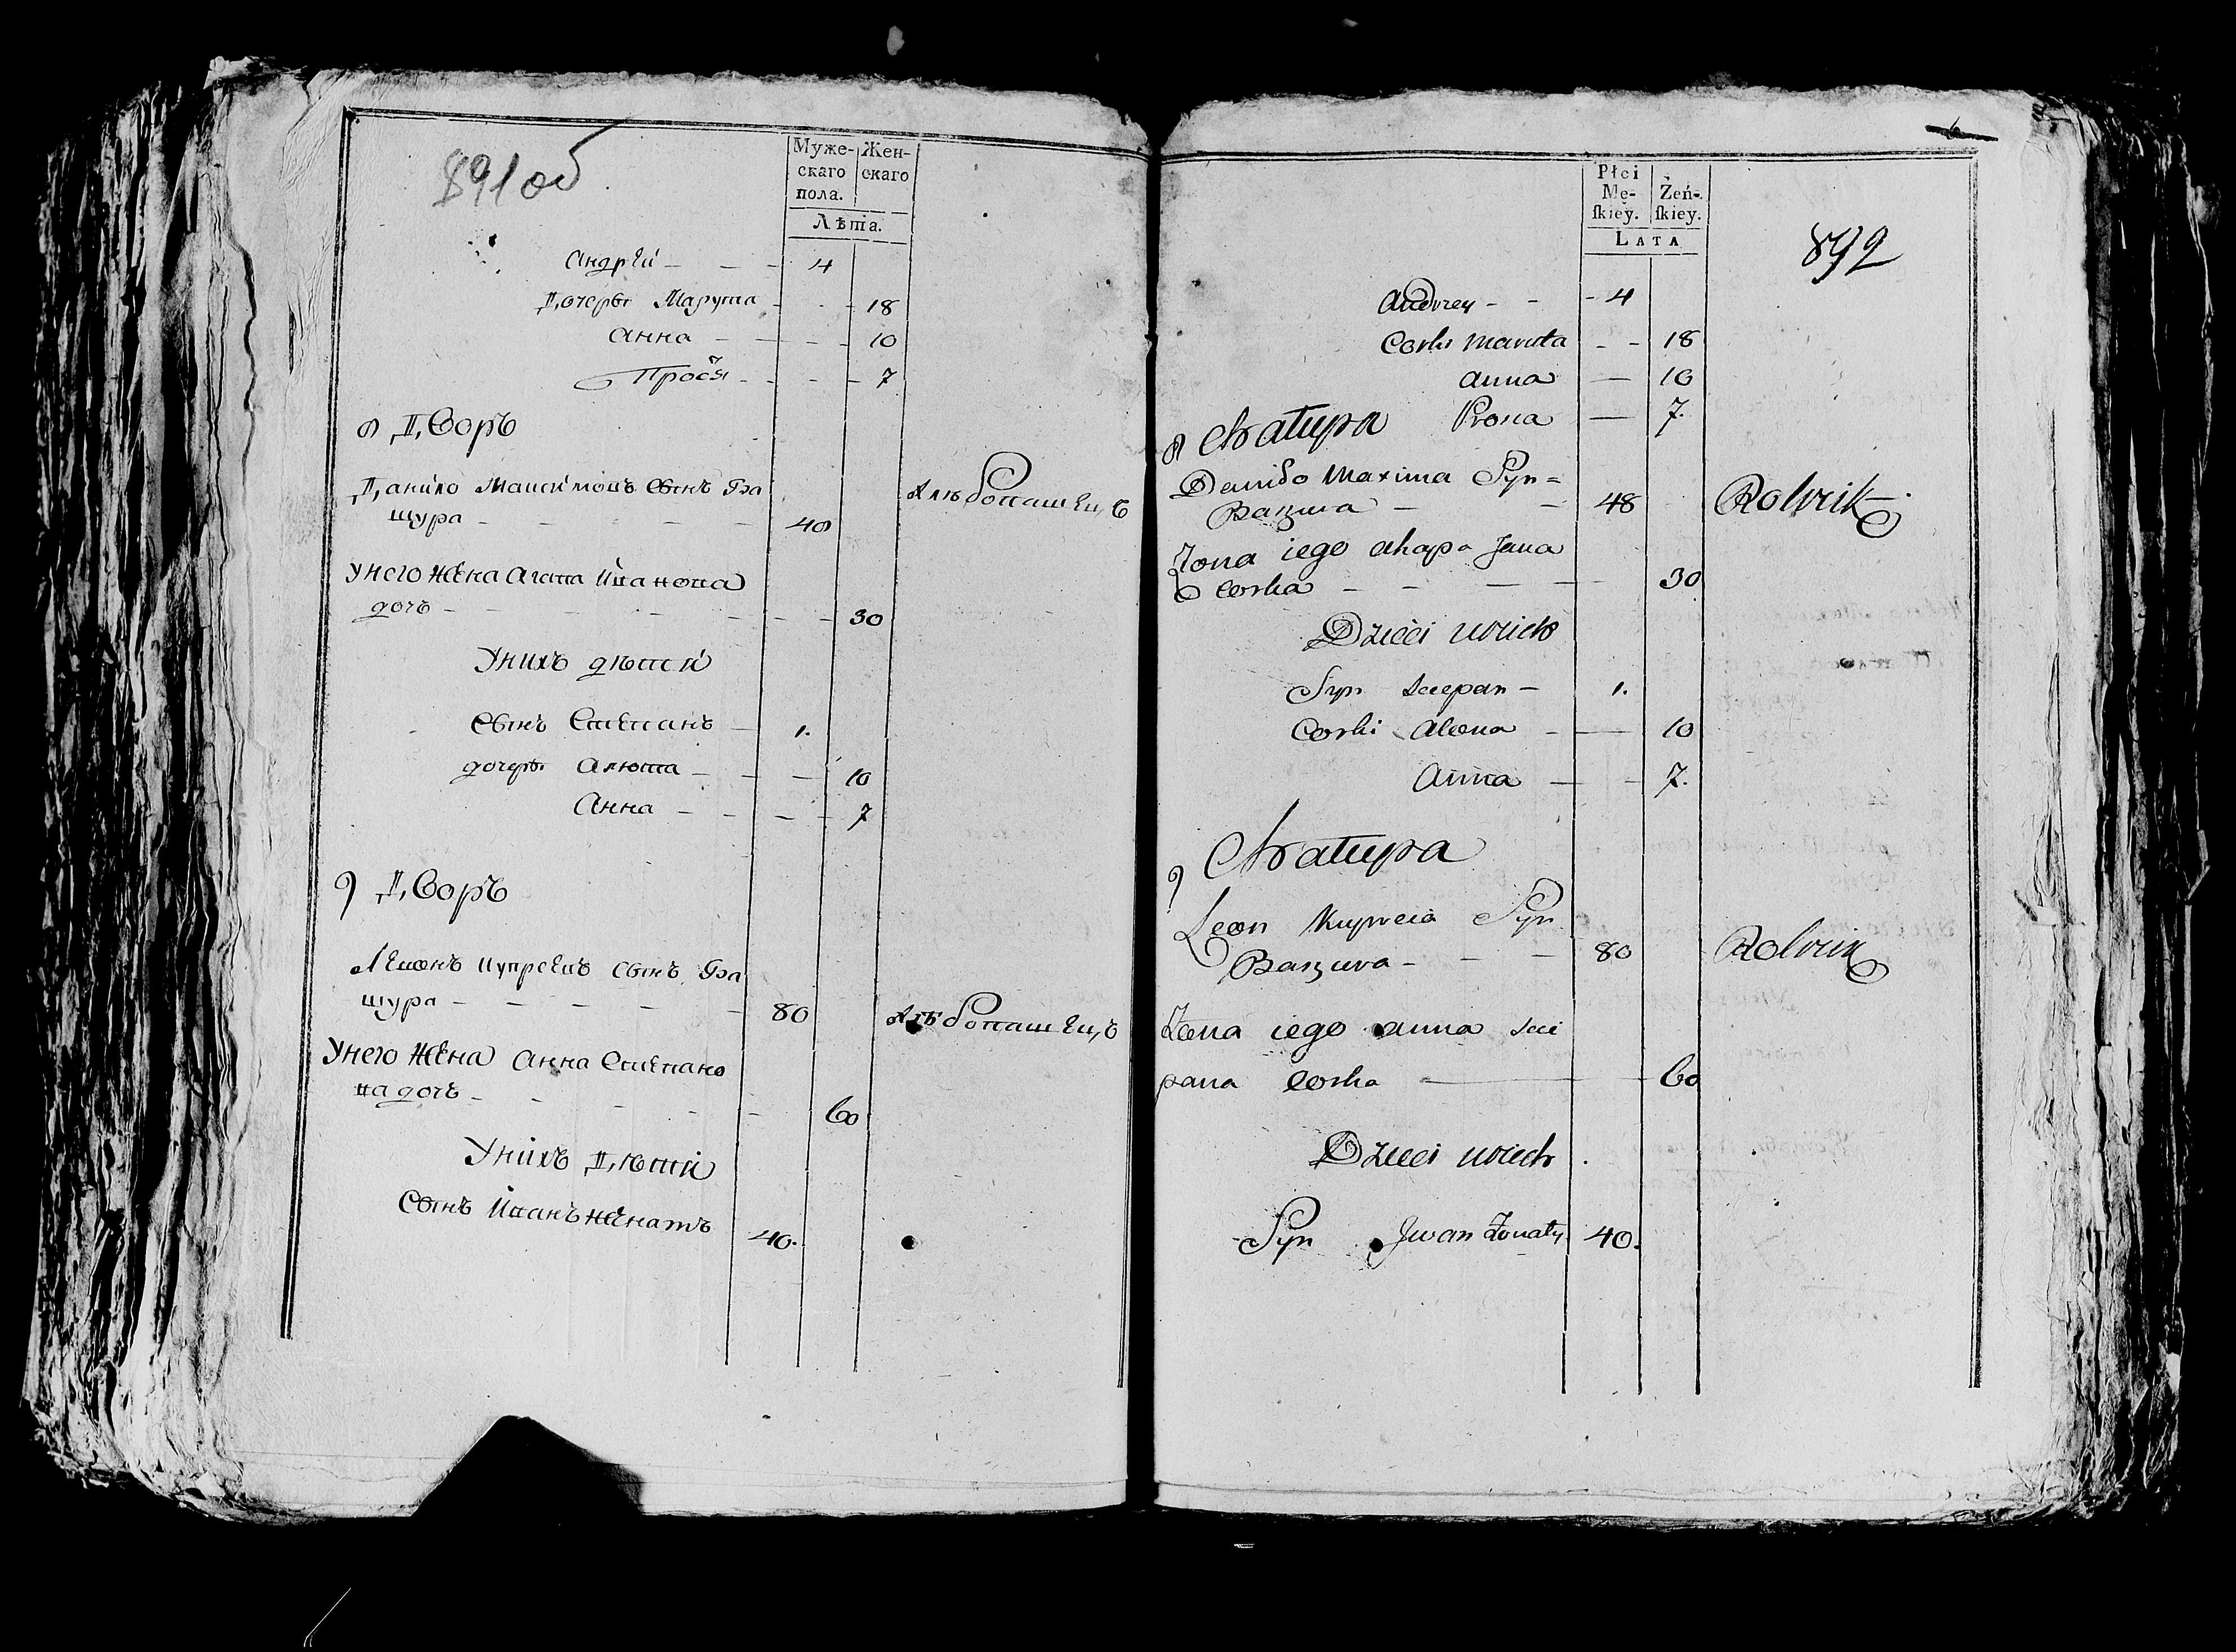 891об
Муже-
скаго
пола.
Жен-
скаго
Лѣта.
Андрей - - - 4
Дочери Марута - - - 18
Анна - - - 10
Прося - - - 7
8 Дворъ
Данило Максимовъ сынъ Ба
цура - - - 48
Хлѣбопашецъ
У него жена Агапа Иванова
дочь - - - 30
У нихъ дѣтей
Сынъ Степанъ - 1.
дочери Алюта - - - 10
Анна - - - 7
9 Дворъ
Левонъ Купреевъ сынъ Ба
цура - - - 80
Хлѣбопашецъ
У него жена Анна Степано
ва дочь - - - 60
У нихъ Дѣтей
Сынъ Иванъ женатъ 40.
892
Płci
Mę-
ſkiey.
Żeń-
ſkiey.
LATA
Andrey - - - 4
Corki Maruta - - 18
Anna - 10
Prosia - 7.
8 Chałupa
Daniło Maxima Syn =
Bacura - - 48
Rolnik
Zona iego Ahapa Jana
Corka - - - 30
Dzieci u nich
Syn Sciepan - 1.
Corki Alona - 10
Anna - - 7.
9 Chałupa
Leon Kupreia Syn
Bacura - - - 80
Rolnik
Zona iego Anna Scie
pana Corka - 60
Dzieci u nich
Syn Jwan Zonaty 40.